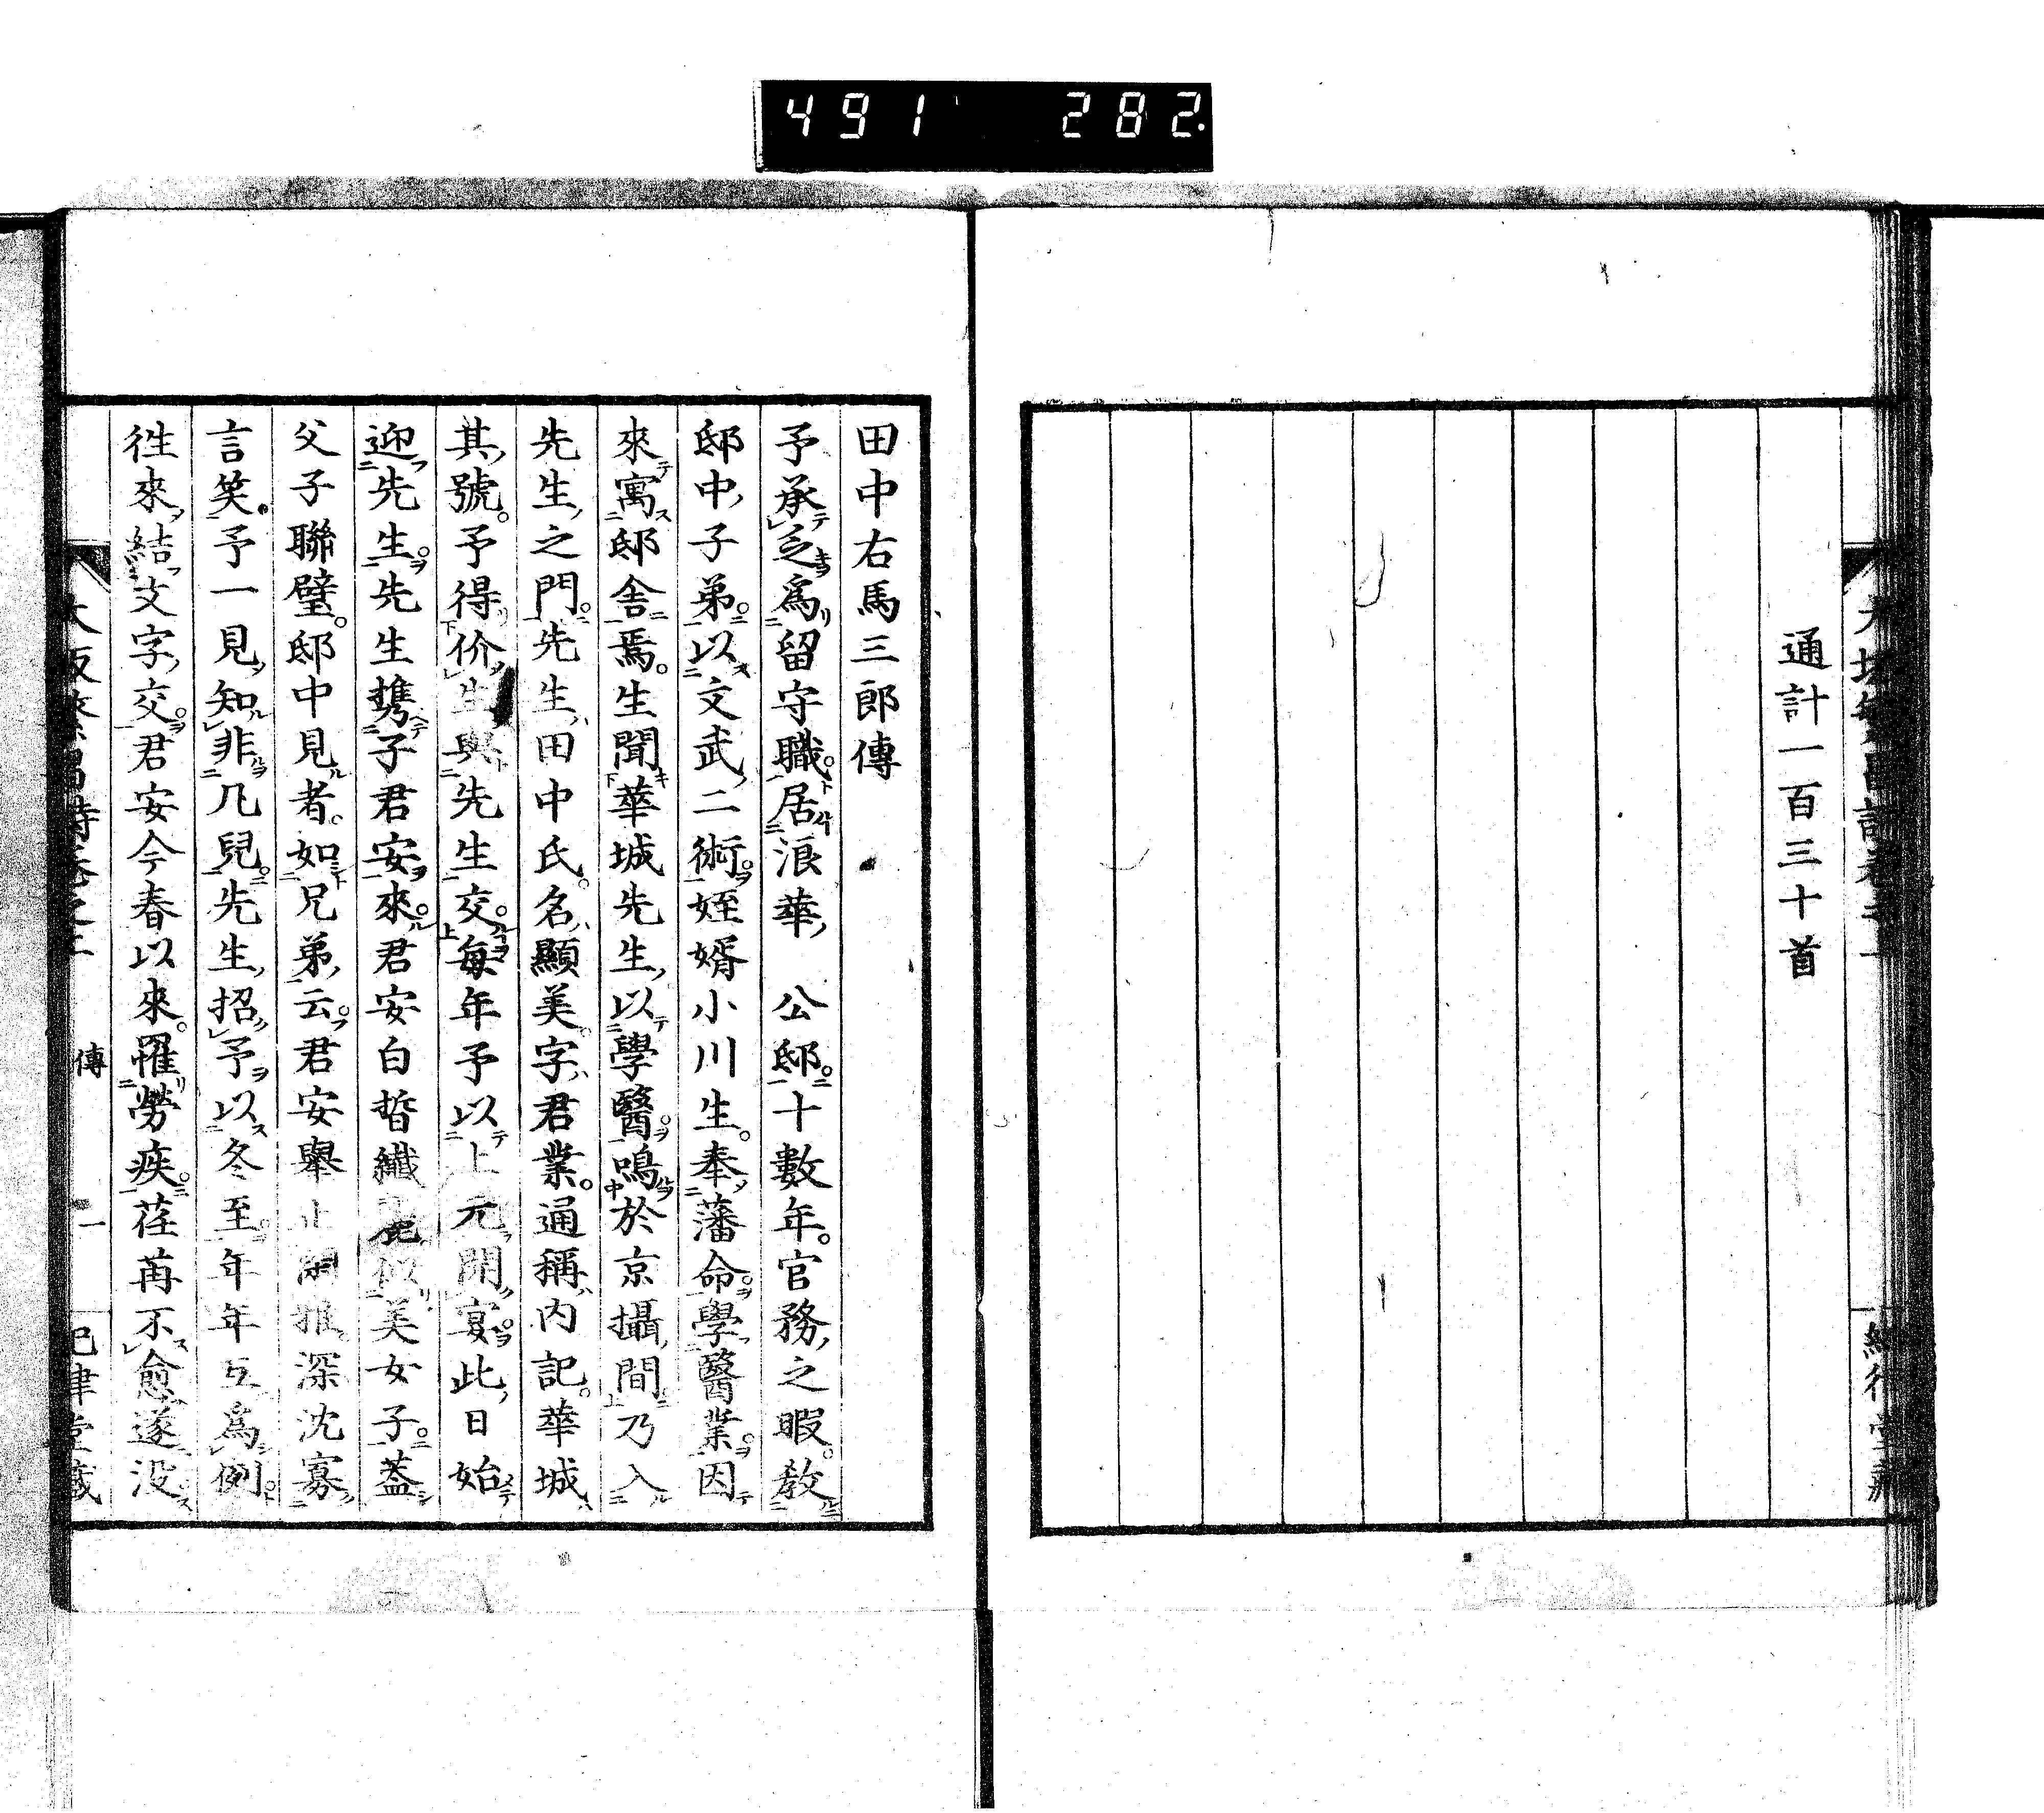 491 282
通計一百三十首
田中右馬三郎傳
予承乏爲留守職。居浪華 公邸。十數年。官務之暇。教
邸中子弟。以文武二術。姪婿小川生。奉藩命。學醫業。因
來寓邸舍焉。生聞華城先生以學醫。鳴於京攝間乃入
先生之門。先生田中氏。名顯美。字君業。通稱内記。華城
其號。予得价生與先生交。每年予以上元開宴。此日始
迎先生。先生携子君安來。君安白皙纖 似美女子。蓋
父子聯璧。邸中見者。如兄弟云。君安舉止 深沈寡
言笑。予一見知非凡兒。先生招予以冬至。年年互爲例。
徃來結文字交。君安今春以來。罹勞疾。荏苒不愈遂没
傳
一